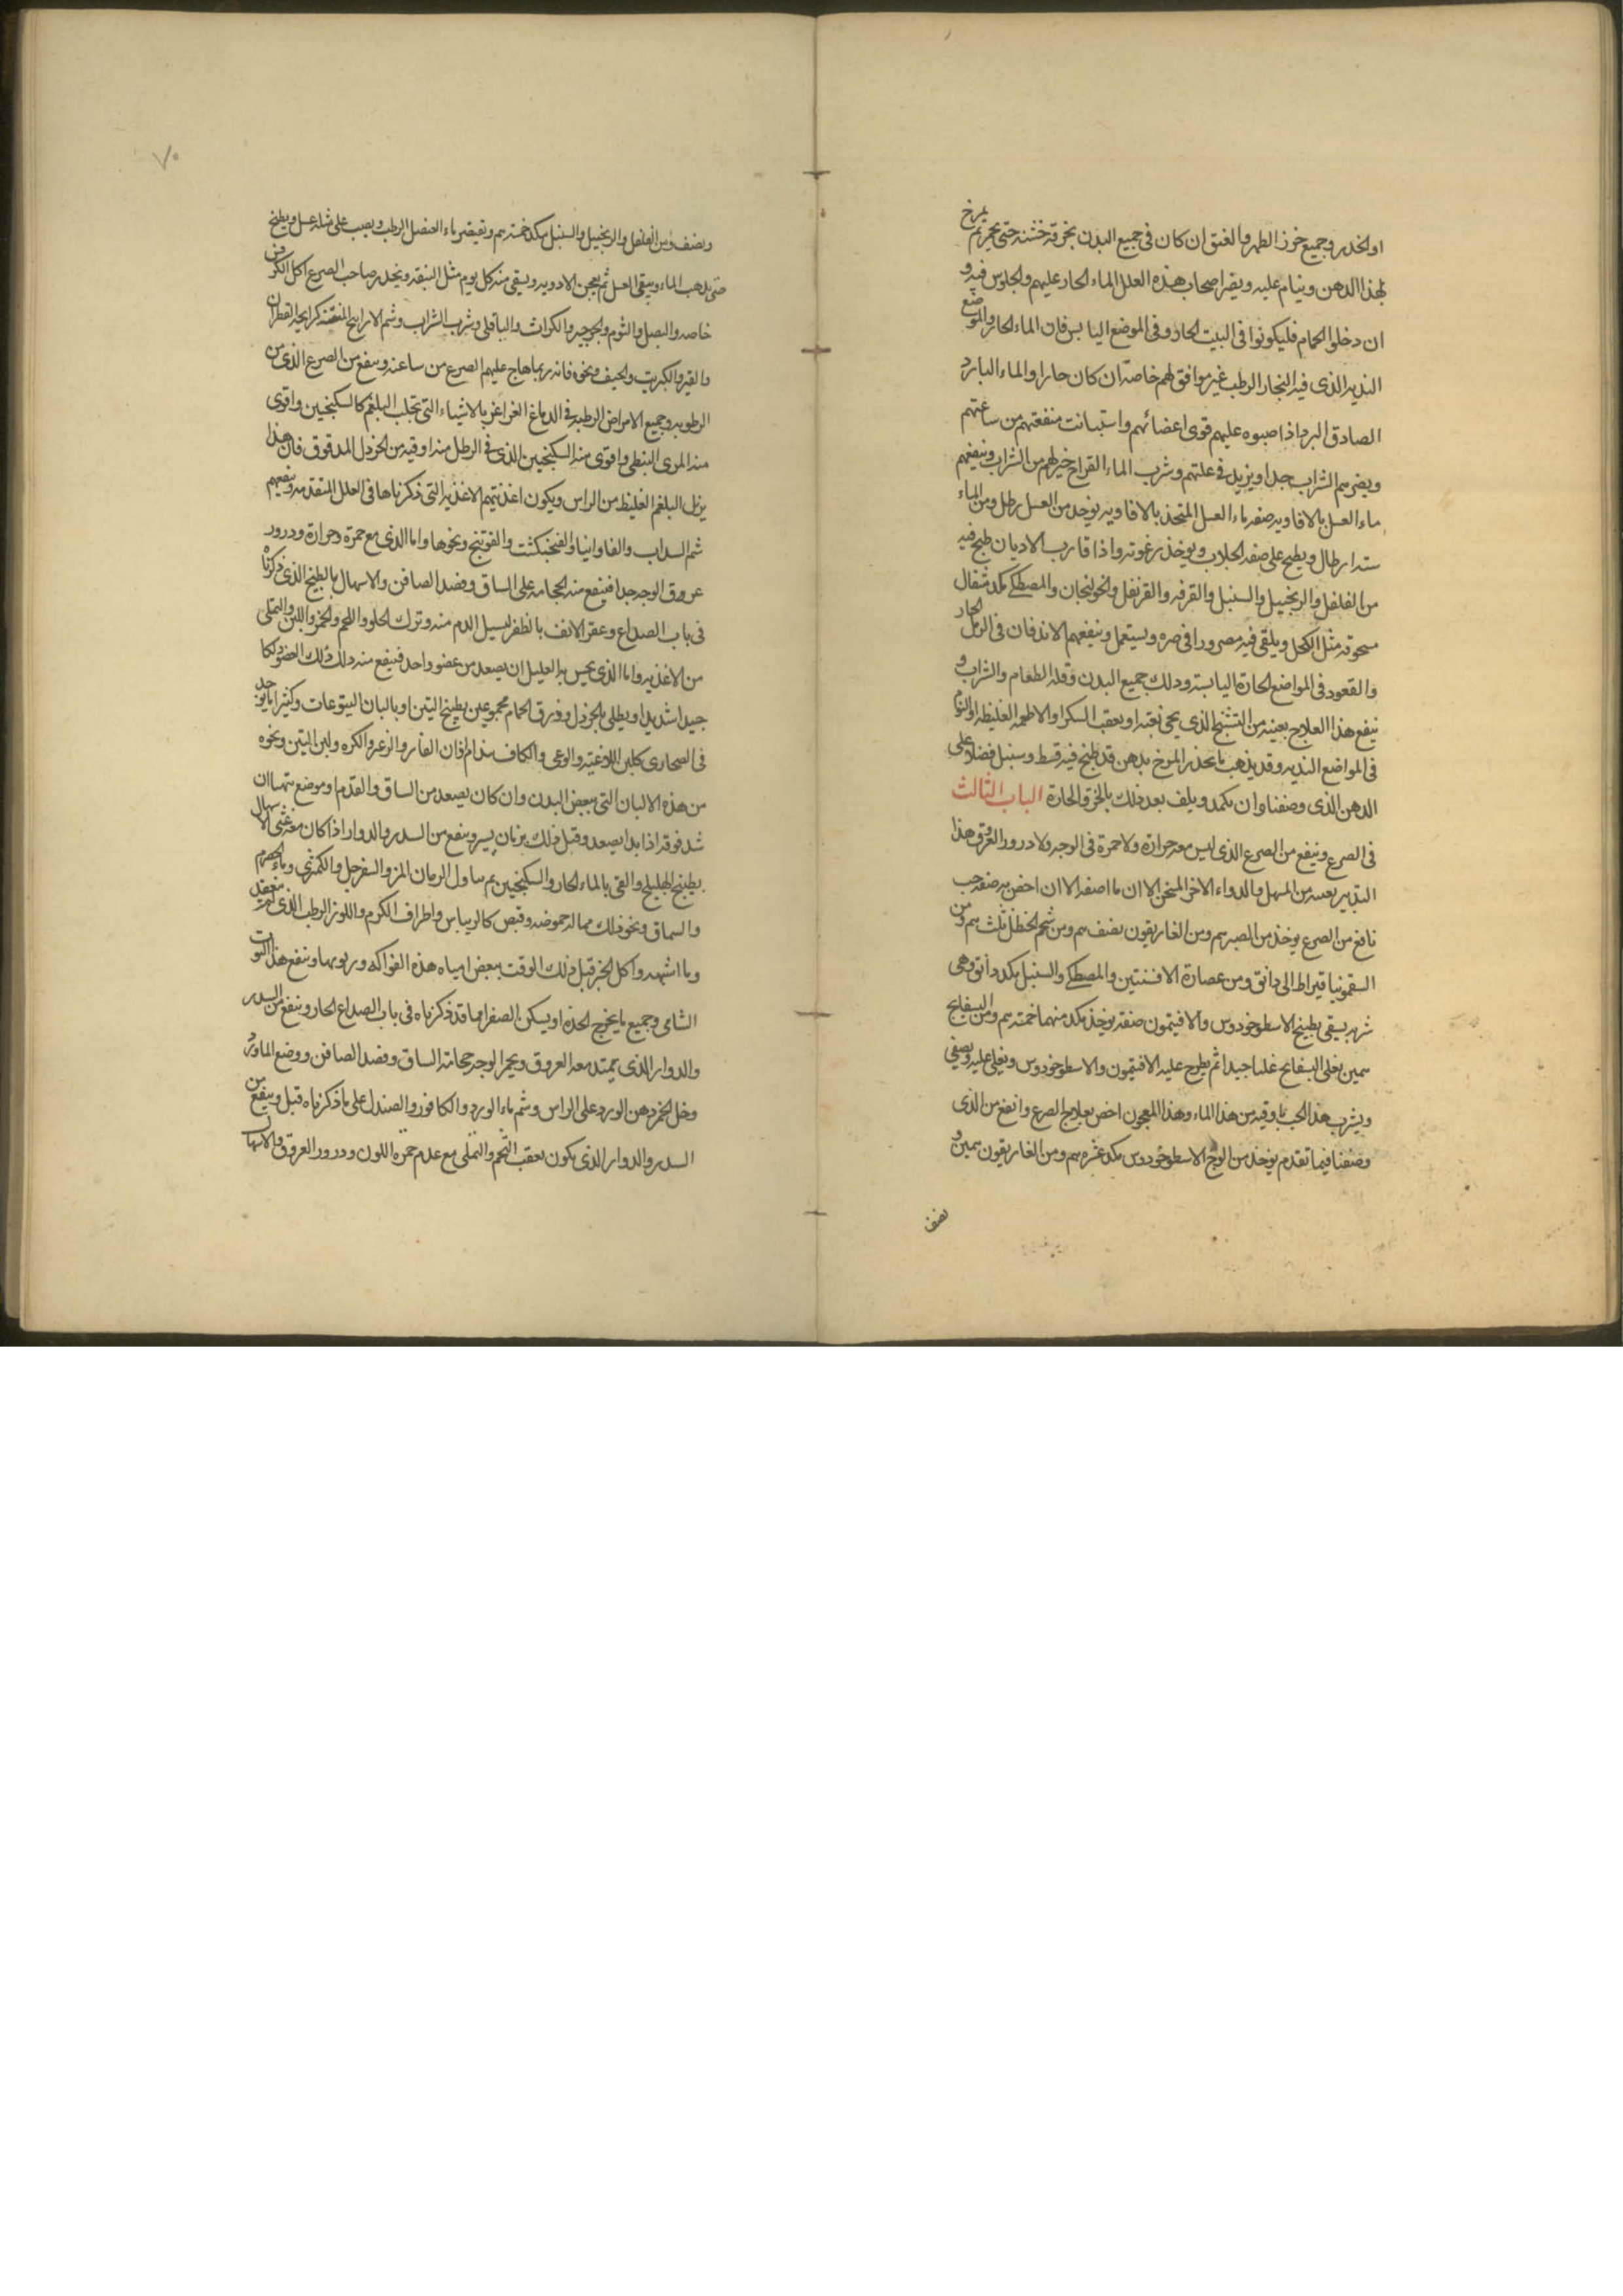 او الخدر وجميع خرز الظهر والعنق ان كان فى جميع البدن بخرقة خشنه حتى يحمر ثم يمرخ
بهذا الدهن وينام عليه ويضر اصحاب هذه العلل الماء الحار عليهم والجلوس فيه و
ان دخلوا الحمام فليكونوا فى البيت الحار وفى الموضع اليابس فان الماء الحار والموضع
النديه الذى فيه البخار الرطب غير موافق لهم خاصة ان كان حارا والماء البارد
الصادق البرد اذا صبوه عليهم قوى اعضائهم واستبانت منفعتهم من ساعتهم
ويضرهم الشراب جدا ويزيد فى علتهم وشرب الماء القراح خير لهم من الشراب وينفعهم
ماء العسل بالافاويه صفه ماء العسل المتخذ بالافاويه يوخذ من العسل رطل ومن الماء
سته ارطال ويطبخ على صفه الجلاب ويوخذ رغوته واذا قارب الاديان طبخ فيه
من الفلفل والزنجبيل والسنبل والقرفه والقرنفل والخولنجان والمصطكى مكد مثقال
مسحوقه مثل الكحل ويلقى فيه مصرورا فى صره ويستعمل وينفعهم الاندفان فى الرمل الحار
والقعود فى المواضع الحارة اليابسة ودلك جميع البدن وقله الطعام والشراب و
ينفع هذا العلاج بعينه من التشنج الذى يجى بغته او بعقب السكر او الاطعمه الغليظه او النوم
فى المواضع النديه وقد يذهب بالخدر المرخ بدهن قد طبخ فيه قسط وسنبل فضلا على
الدهن الذى وصفنا وان يكمد ويلف بعد ذلك بالخرق الحارة الباب الثالث
فى الصرع وينفع من الصرع الذى ليس معه حرارة ولا حمرة فى الوجه ولا درور العروق هذا
التدبير بعينه من المسهل والدواء الاخر المسخن الا ان ما اصفه الان اخص به صفه حب
نافع من الصرع يوخذ من الصبرهم ومن الغاريقون نصفهم ومن شحم الحنظل ثلثهم ومن
السقمونيا قيراط الى دانق ومن عصارة الافسنتين والمصطكى والسنبل مكد دانق وهى
شربه يسقى بطبيخ الاسطوخودوس والافيتمون صفته يوخذ مكد منهما خمسه هم ومن البسفايج
همين يغلى البسفايج غليا جيدا ثم يطرح عليه الافتيمون والاسطوخودوس ويغلى عليه ويصفى
ويشرب هذا الحب باوقيه من هذا الماء وهذا المعجون اخص بعلاج الصرع وانفع من الذى
وصفنا فيما تقدم يوخذ من الوج والاسطوخودوس مكد عشره هم ومن الغاريقون همين و
نصف
٧٠
ونصف ومن الفلفل والزنجبيل والسنبل مكد خمسه هم ونقيضه ماء العنصل الرطب ويصب على مثله عسل ويطبخ
حتى يذهب الماء ويبقى العسل ثم يعجن الادويه ويسقى منه كل يوم مثل البندقه ويحذر صاحب الصرع اكل الكرفس
خاصه والبصل والثوم والجرجير والكراث والباقلى وشرب الشراب وشم الاراييح المنتنه كرايحه القطران
والقير والكبريت والجيف ونحوه فانه ربما هاج عليهم الصرع من ساعته وينفع من الصرع الذى من
الرطوبه وجميع الامراض الرطبه فى الدماغ الغراغر بالاشياء التى تجلب البلغم كالسكنجبين واقوى
منه المرى النبطى واقوى منه السكنجبين الذى فى الرطل منه اوقيه من الخردل المدقوق فان هذا
ينزل البلغم الغليظ من الراس ويكون اغذيتهم الاغذيه التى ذكرناها فى العلل المتقدمه وينفعهم
شم السداب والفاوانيا والفنجنكشت والفوتنج ونحوها واما الذى مع حمرة وحرارة ودرور
عروق الوجه جدا فينفع منه الحجامه على الساق وفصد الصافن والاسهال بالطبيخ الذى ذكرناه
فى باب الصداع وعقر الانف بالظفر ليسيل الدم منه وترك الحلو واللحم والخمر واللبن والتملى
من الاغذيه واما الذى يحس به العليل ان يصعد من عضو واحد فينفع منه دلك ذلك العضو دلكا
جيدا شديدا ويطلى بالخردل وذرق الحمام مجموعين بطبيخ التين او بالبان اليتوعات وكثيرا ما يوجد
فى الصحارى كلبن اللاغيه والوعى والكاف فان الفار والزعرو الكره ولبن التين ونحوه
من هذه الالبان التى ببعض البدن وان كان يصعد من الساق والقدم او موضع يتهيا ان
شد فوقه اذا بدا يصعد وقبل ذلك بزمان يسير وينفع من السدر والدوار اذا كان معه غثى الاسهال
بطبيخ الهليلج والقى بالماء الحار والسكنجبين ثم يتناول الرمان المز والسفرجل والكمثرى وماء الحصرم
والسماق ونحو ذلك مما له حموضه وقبض كالريباس واطراف الكرم واللوز الرطب الذى لم ينعقد
وما اشبهه واكل الخبز قبل ذلك الوقت ببعض امياه هذه الفواكه وربوبها وينفع هذا التوت
الشامى وجميع ما يخرج الحده او يسكن الصفرا مما قد ذكرناه فى باب الصداع الحار وينفع من السدر
والدوار الذى يمتد معه العروق ويحمر الوجه حجامة الساق وفصد الصافن ووضع الماورد
وخل الخمر ودهن الورد على الراس وشم ماء الورد والكافور والصندل على ما ذكرناه قبل وينفع من
السدر والدوار الذى يكون بعقب التخم والتملى مع عدم حمره اللون ودرور العروق والالتهاب